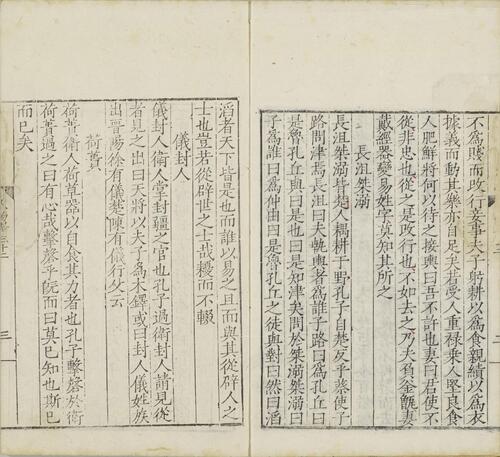 不為賤而改行妾事夫子躬耕以為食親績以為衣
據義而動其樂亦自足矣若受人重祿乘人堅良食
人肥鮮將何以待之接輿曰吾不許也妻曰君使不
從非忠也從之是改行也不如去之乃夫負釜甑妻
戴經器變易姓字莫知其所之
長沮桀溺
長沮桀溺皆楚人耦耕于野孔子自楚反乎蔡使子
路問津焉長沮曰夫執輿者為誰子路曰為孔丘曰
是魯孔丘與曰是也曰是知津矣問於桀溺桀溺曰
子為誰曰為仲由曰是魯孔丘之徒與對曰然曰滔
滔者天下皆是也而誰以易之且而與其從辟人之
士也豈若從辟世之士哉耰而不輟
儀封人
儀封人衛人掌封疆之官也孔子過衛封人請見從
者見之出曰天將以夫子為木鐸或曰封人儀姓族
出晉陽徐有儀楚陳有儀行父云
荷蕢
荷蕢衛人荷草器以自食其力者也孔子擊磬於衛
荷蕢過之曰有心哉擊磬乎旣而曰莫已知也斯已
而已矣